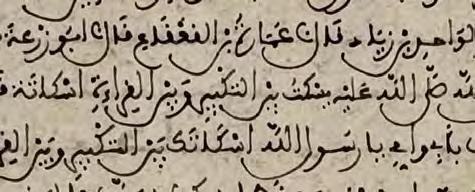 الواحد بن زياد قال عمارة بن القعقاع قال ابو زرعة
الله صلى الله عليه يسكت بين التكبير وبين القراءة اسكاتة
بأبي وأمي يا رسول الله اسكاتك بين التكبير وبين